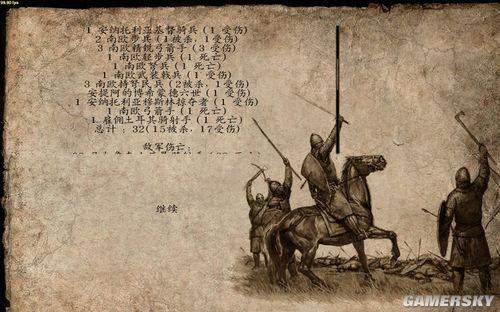 99.90 fps
1 安纳托利亚基督骑兵 (1 受伤)
2 南欧步兵 (1被杀, 1受伤)
3 南欧精锐弓箭手 (3 受伤)
1 南欧轻步兵 (1 死亡)
1 南欧弩兵 (1 死亡)
1 南欧武装戟兵 (1 受伤)
3 南欧持弩民兵 (2被杀, 1受伤)
安提阿的博希蒙德六世 (1受伤)
1 安纳托利亚穆斯林掠夺者 (1受伤)
1 南欧弓箭手 (1 死亡)
1 雇佣土耳其骑射手 (1 死亡)
总计 : 32(15被杀, 17受伤)
敌军伤亡:
继续
GAMERSKY